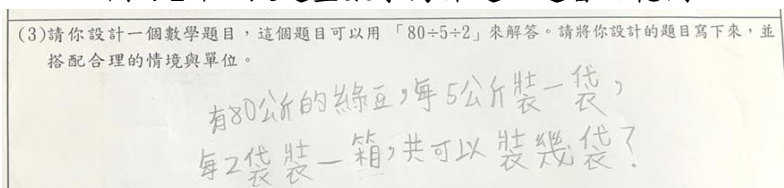 (3)請你設計一個數學題目，這個題目可以用「80÷5÷2」來解答。請將你設計的題目寫下來，並
搭配合理的情境與單位。
有80公斤的綠豆，每5公斤裝一袋，
每2袋裝一箱，共可以裝幾袋？